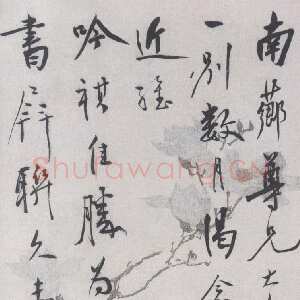 南薌尊兄大
一别數月想念
近維
吟祺佳勝為
書屏聯久未
Shufawang.CN